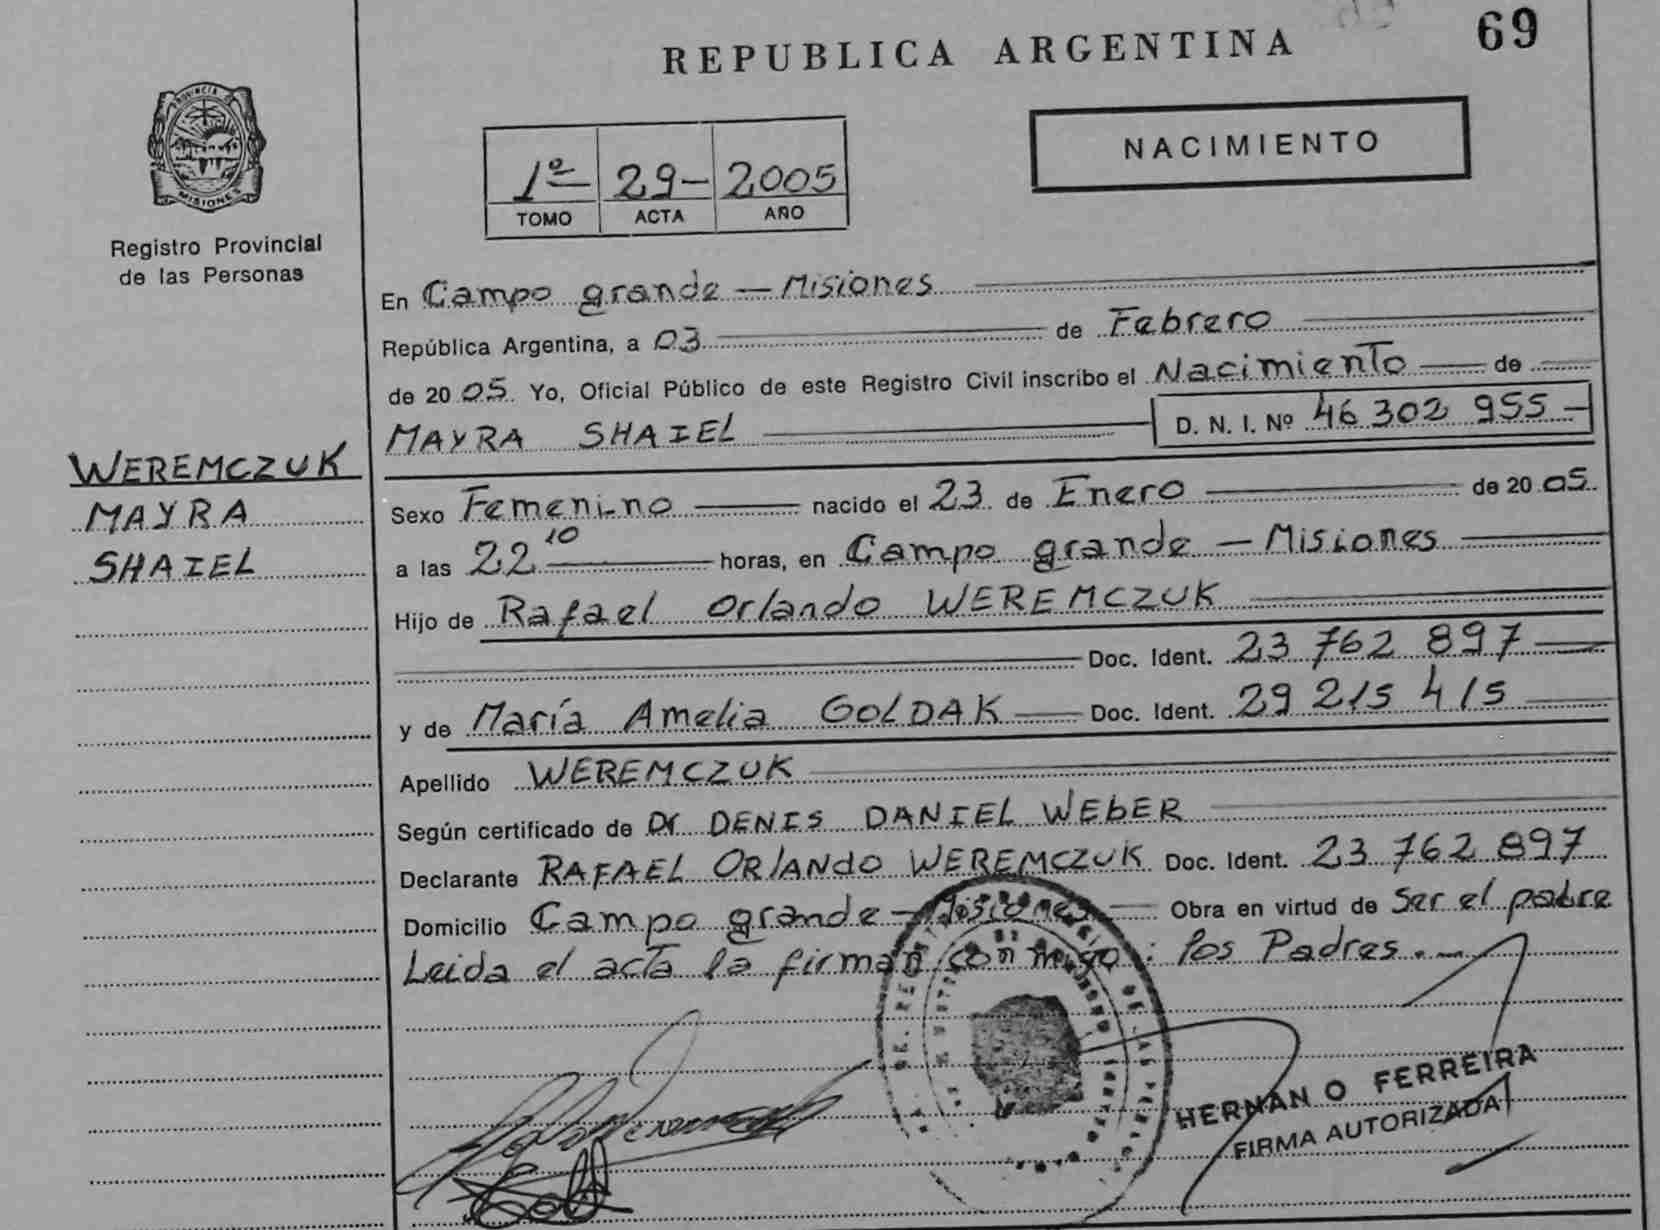 69
REPUBLICA ARGENTINA
NACIMIENTO
1º 29- 2005
TOMO ACTA AÑO
PROVINCIA DE
MISIONES
Registro Provincial
de las Personas
En Campo grande - Misiones
República Argentina, a 03 de Febrero
de 20 05. Yo, Oficial Público de este Registro Civil inscribo el Nacimiento de
MAYRA SHAIEL D. N. I. Nº 46 302 955 -
WEREMCZUK
MAYRA
SHAIEL
Sexo Femenino nacido el 23 de Enero de 20 05.
a las 22 10 horas, en Campo grande - Misiones
Hijo de Rafael Orlando WEREMCZUK
Doc. Ident. 23 762 897
y de María Amelia GOLDAK Doc. Ident. 29 215 415
Apellido WEREMCZUK
Según certificado de Dr DENIS DANIEL WEBER
Declarante RAFAEL ORLANDO WEREMCZUK Doc. Ident. 23 762 897
Domicilio Campo grande - Misiones Obra en virtud de Ser el padre
Leida el acta la firman conmigo: los Padres.
HERNAN O FERREIRA
FIRMA AUTORIZADA